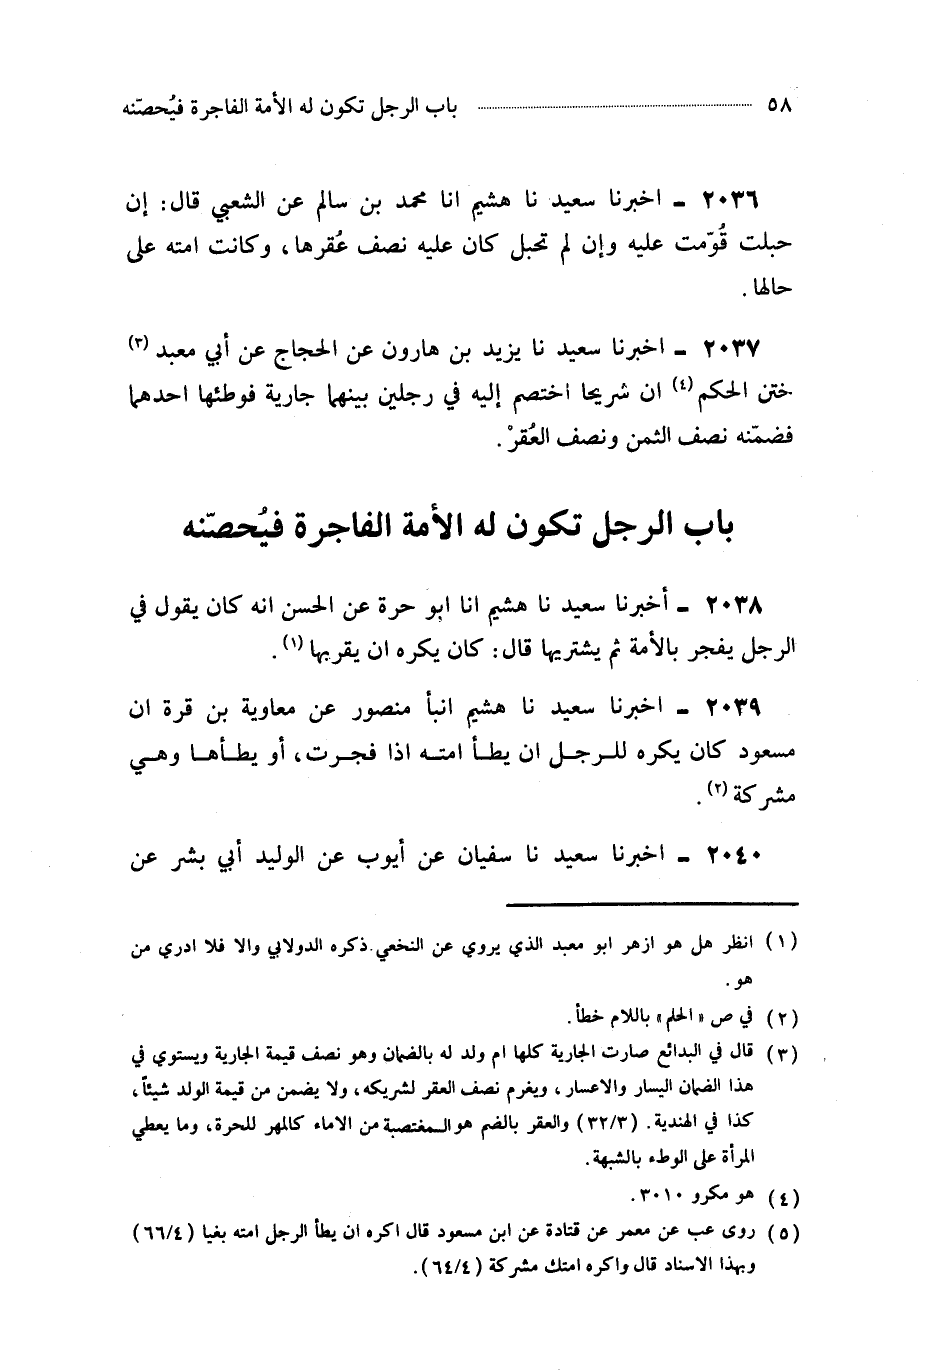 ٥٨ ........ باب الرجل تكون له الأمة الفاجرة فيُحصّنه
٢٠٣٦ ـ اخبرنا سعيد نا هشيم انا محمد بن سالم عن الشعبي قال: إن
حبلت قُوّمت عليه وإن لم تحبل كان عليه نصف عُقرها، وكانت امته على
حالها.
٢٠٣٧ ـ اخبرنا سعيد نا يزيد بن هارون عن الحجاج عن أبي معبد (٣)
ختن الحكم (٤) ان شريحا اختصم إليه في رجلين بينهما جارية فوطئها احدهما
فضمّنه نصف الثمن ونصف العُقرْ.
باب الرجل تكون له الأمة الفاجرة فيُحصّنه
٢٠٣٨ ـ أخبرنا سعيد نا هشيم انا ابو حرة عن الحسن انه كان يقول في
الرجل يفجر بالأمة ثم يشتريها قال: كان يكره ان يقربها (١).
٢٠٣٩ ـ اخبرنا سعيد نا هشيم انبأ منصور عن معاوية بن قرة ان
مسعود كان يكره للرجل ان يطأ امته اذا فجرت، أو يطأها وهي
مشركة (٢).
٢٠٤٠ ـ اخبرنا سعيد نا سفيان عن أيوب عن الوليد أبي بشر عن
(١) انظر هل هو ازهر ابو معبد الذي يروي عن النخعي ذكره الدولابي والا فلا ادري من
هو.
(٢) في ص «الحلم» باللام خطأ.
(٣) قال في البدائع صارت الجارية كلها ام ولد له بالضمان وهو نصف قيمة الجارية ويستوي في
هذا الضمان اليسار والاعسار، ويغرم نصف العقر لشريكه، ولا يضمن من قيمة الولد شيئاً،
كذا في الهندية. (٣٢/٣) والعقر بالضم هو المغتصبة من الاماء كالمهر للحرة، وما يعطي
المرأة على الوطء بالشبهة.
(٤) هو مكرو ٣٠١٠.
(٥) روى عب عن معمر عن قتادة عن ابن مسعود قال اكره ان يطأ الرجل امته بغيا (٦٦/٤)
وبهذا الاسناد قال واكره امتك مشركة (٦٤/٤).